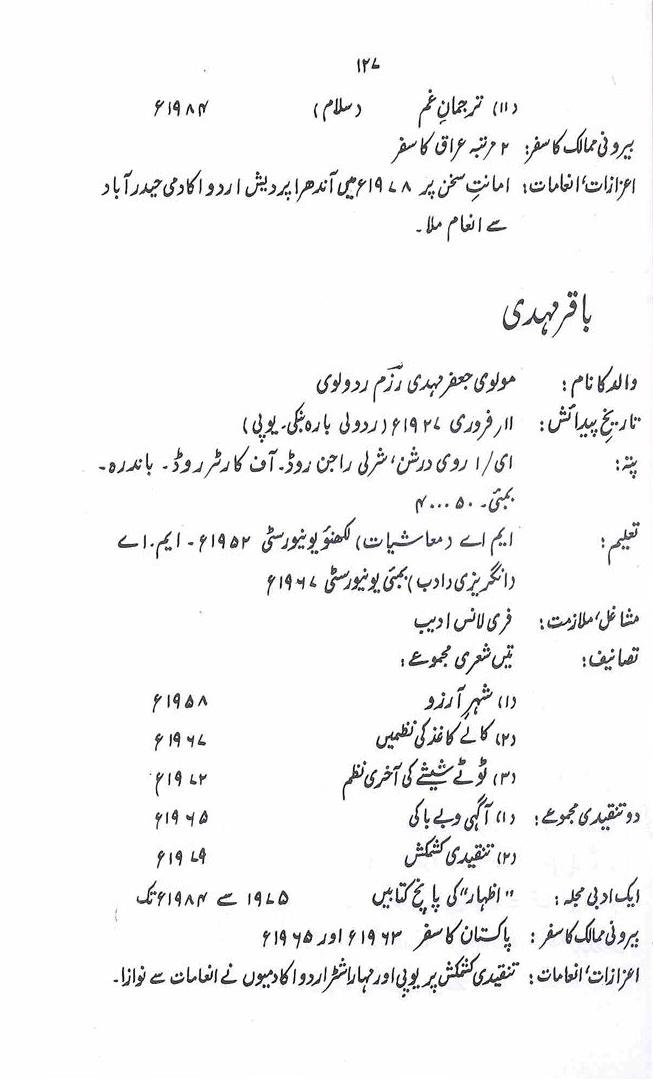 ۱۲۷
(۱۱) ترجمانِ غم (سلام) ۱۹۸۴ء
بیرونی ممالک کا سفر: ۲ مرتبہ عراق کا سفر
اعزازات، انعامات: امانتِ سخن پر ۱۹۷۸ء میں آندھرا پردیش اردو اکادمی حیدرآباد
سے انعام ملا۔
باقر مہدی
والد کا نام: مولوی جعفر مہدی رزم ردولوی
تاریخِ پیدائش: ۱۱ر فروری ۱۹۲۷ء (ردولی بارہ بنکی۔ یوپی)
پتہ: ای/۱ روی درشن، شرلی راجن روڈ۔ آف کارٹر روڈ۔ باندرہ۔
بمبئی۔ ۴۰۰۰۵۰
تعلیم: ایم اے (معاشیات) لکھنؤ یونیورسٹی ۱۹۵۲ء۔ ایم۔ اے
(انگریزی ادب) بمبئی یونیورسٹی ۱۹۶۷ء
مشاغل، ملازمت: فری لانس ادیب
تصانیف: تین شعری مجموعے:
(۱) شہرِ آرزو ۱۹۵۸ء
(۲) کالے کاغذ کی نظمیں ۱۹۶۷ء
(۳) ٹوٹے شیشے کی آخری نظم ۱۹۷۲ء
دو تنقیدی مجموعے: (۱) آگہی و بے باکی ۱۹۶۵ء
(۲) تنقیدی کشمکش ۱۹۷۹ء
ایک ادبی مجلہ: "اظہار" کی پانچ کتابیں ۱۹۷۵ سے ۱۹۸۴ء تک
بیرونی ممالک کا سفر: پاکستان کا سفر ۱۹۶۳ء اور ۱۹۶۵ء
اعزازات، انعامات: تنقیدی کشمکش پر یوپی اور مہاراشٹر اردو اکادمیوں نے انعامات سے نوازا۔